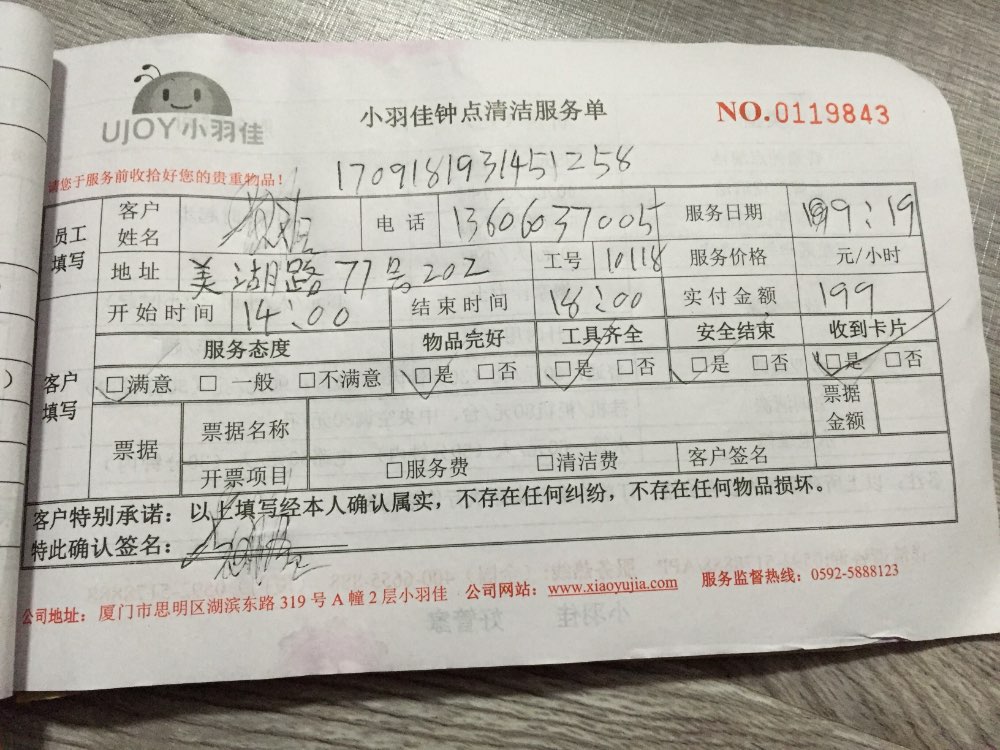 UJOY小羽佳
小羽佳钟点清洁服务单
NO.0119843
请您于服务前收拾好您的贵重物品!
1709181931451258
员工填写 客户姓名 电话 13606037005 服务日期 9:19
地址 美湖路77号202 工号 10118 服务价格 元/小时
客户填写 开始时间 14:00 结束时间 18:00 实付金额 199
服务态度 物品完好 工具齐全 安全结束 收到卡片
☐满意 ☐一般 ☐不满意 ☐是 ☐否 ☐是 ☐否 ☐是 ☐否 ☐是 ☐否
票据 票据名称 票据金额
开票项目 ☐服务费 ☐清洁费 客户签名
客户特别承诺:以上填写经本人确认属实,不存在任何纠纷,不存在任何物品损坏。
特此确认签名:
公司地址:厦门市思明区湖滨东路319号A幢2层小羽佳 公司网站:www.xiaoyujia.com 服务监督热线:0592-5888123